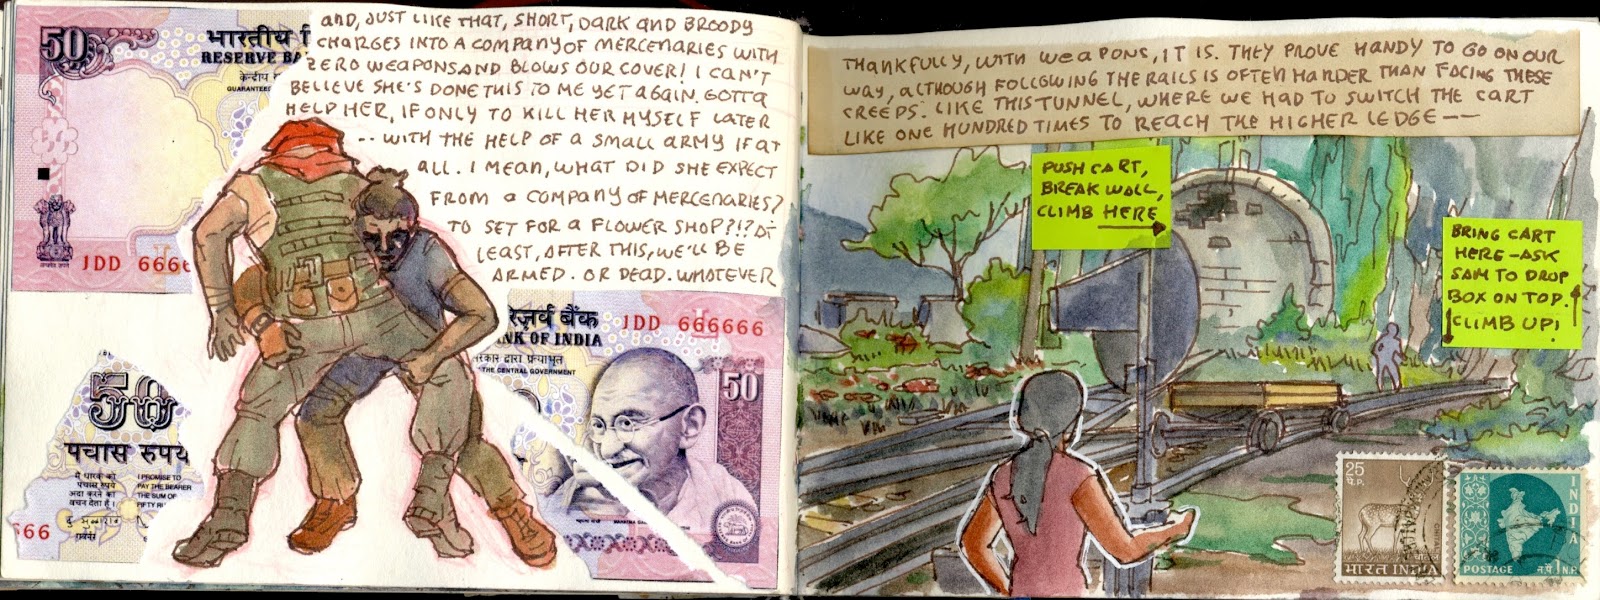 AND, JUST LIKE THAT, SHORT, DARK AND BROODY
CHARGES INTO A COMPANY OF MERCENARIES WITH
ZERO WEAPONS AND BLOWS OUR COVER! I CAN'T
BELIEVE SHE'S DONE THIS TO ME YET AGAIN. GOTTA
HELP HER, IF ONLY TO KILL HER MYSELF LATER
-- WITH THE HELP OF A SMALL ARMY IF AT
ALL. I MEAN, WHAT DID SHE EXPECT
FROM A COMPANY OF MERCENARIES?
TO SET FOR A FLOWER SHOP?!? AT
LEAST, AFTER THIS, WE'LL BE
ARMED. OR DEAD. WHATEVER
50
भारतीय
RESERVE BA
केन्द्रीय
GUARANTEE
JDD 6666
50
पचास रुपय
मैं धारक को
अदा करने का
वचन देता हूँ।
I PROMISE TO
PAY THE BEARER
THE SUM OF
66
रिज़र्व बैंक
NK OF INDIA
JDD 666666
सरकार द्वारा प्रत्याभूत
THE CENTRAL GOVERNMENT
50
THANKFULLY, WITH WEAPONS, IT IS. THEY PROVE HANDY TO GO ON OUR
WAY, ALTHOUGH FOLLOWING THE RAILS IS OFTEN HARDER THAN FACING THESE
CREEPS. LIKE THIS TUNNEL, WHERE WE HAD TO SWITCH THE CART
LIKE ONE HUNDRED TIMES TO REACH THE HIGHER LEDGE --
PUSH CART,
BREAK WALL,
CLIMB HERE
BRING CART
HERE - ASK
SAM TO DROP
BOX ON TOP.
CLIMB UP!
25
P.
भारत INDIA
INDIA
POSTAGE न.पै.1 N.P.